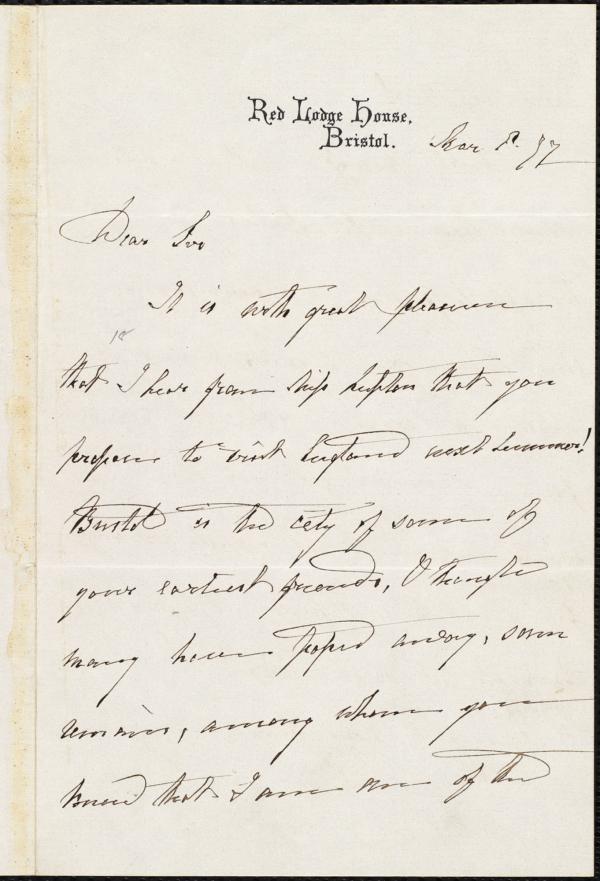 Red Lodge House,
Bristol. Mar 8. 77
Dear Sir
It is with great pleasure
that I hear from Miss Lupton that you
propose to visit England next summer!
Bristol is the city of some of
your earliest friends, & though
many have passed away, some
remain, among whom you
know that I am one of the